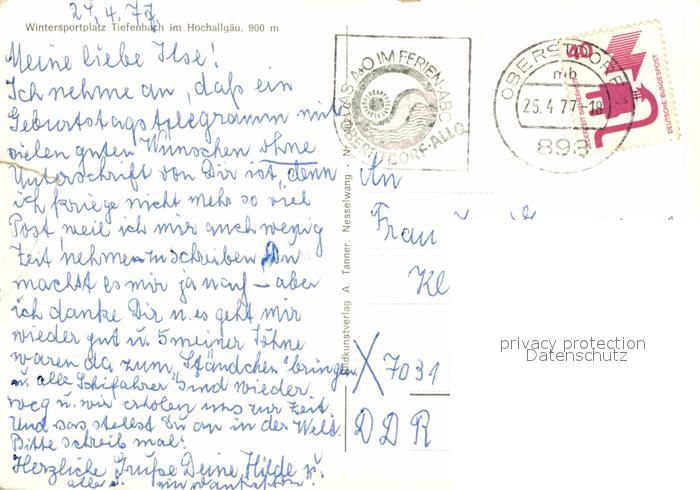 24.4.77
Wintersportplatz Tiefenbach im Hochallgäu. 900 m
Meine liebe Ilse!
Ich nehme an, daß ein
Geburtstagstelegramm mit
vielen guten Wünschen ohne
Unterschrift von Dir ist, denn
ich kriege nicht mehr so viel
Post, weil ich mir auch wenig
Zeit nehme zu schreiben. Du
machst es mir ja nach – aber
ich danke Dir u. es geht mir
wieder gut u. 5 meiner Söhne
waren da zum "Ständchen" bringen
u. alle "Schifahrer" sind wieder
weg u. wir erholen uns zur Zeit.
Und was stellst Du an in der Welt.
Bitte schreib mal!
Herzliche Grüße Deine Hilde u.
alle
Bildkunstverlag A. Tanner, Nesselwang - Nr.
DAS A+O IM FERIEN-ABC
OBERSTDORF-ALLG.
OBERSTDORF 1
mb
25.4.77-18
898
40
JEDERZEIT SICHERHEIT
DEUTSCHE BUNDESPOST
An
Frau
Kl
X 7031
DDR
privacy protection
Datenschutz